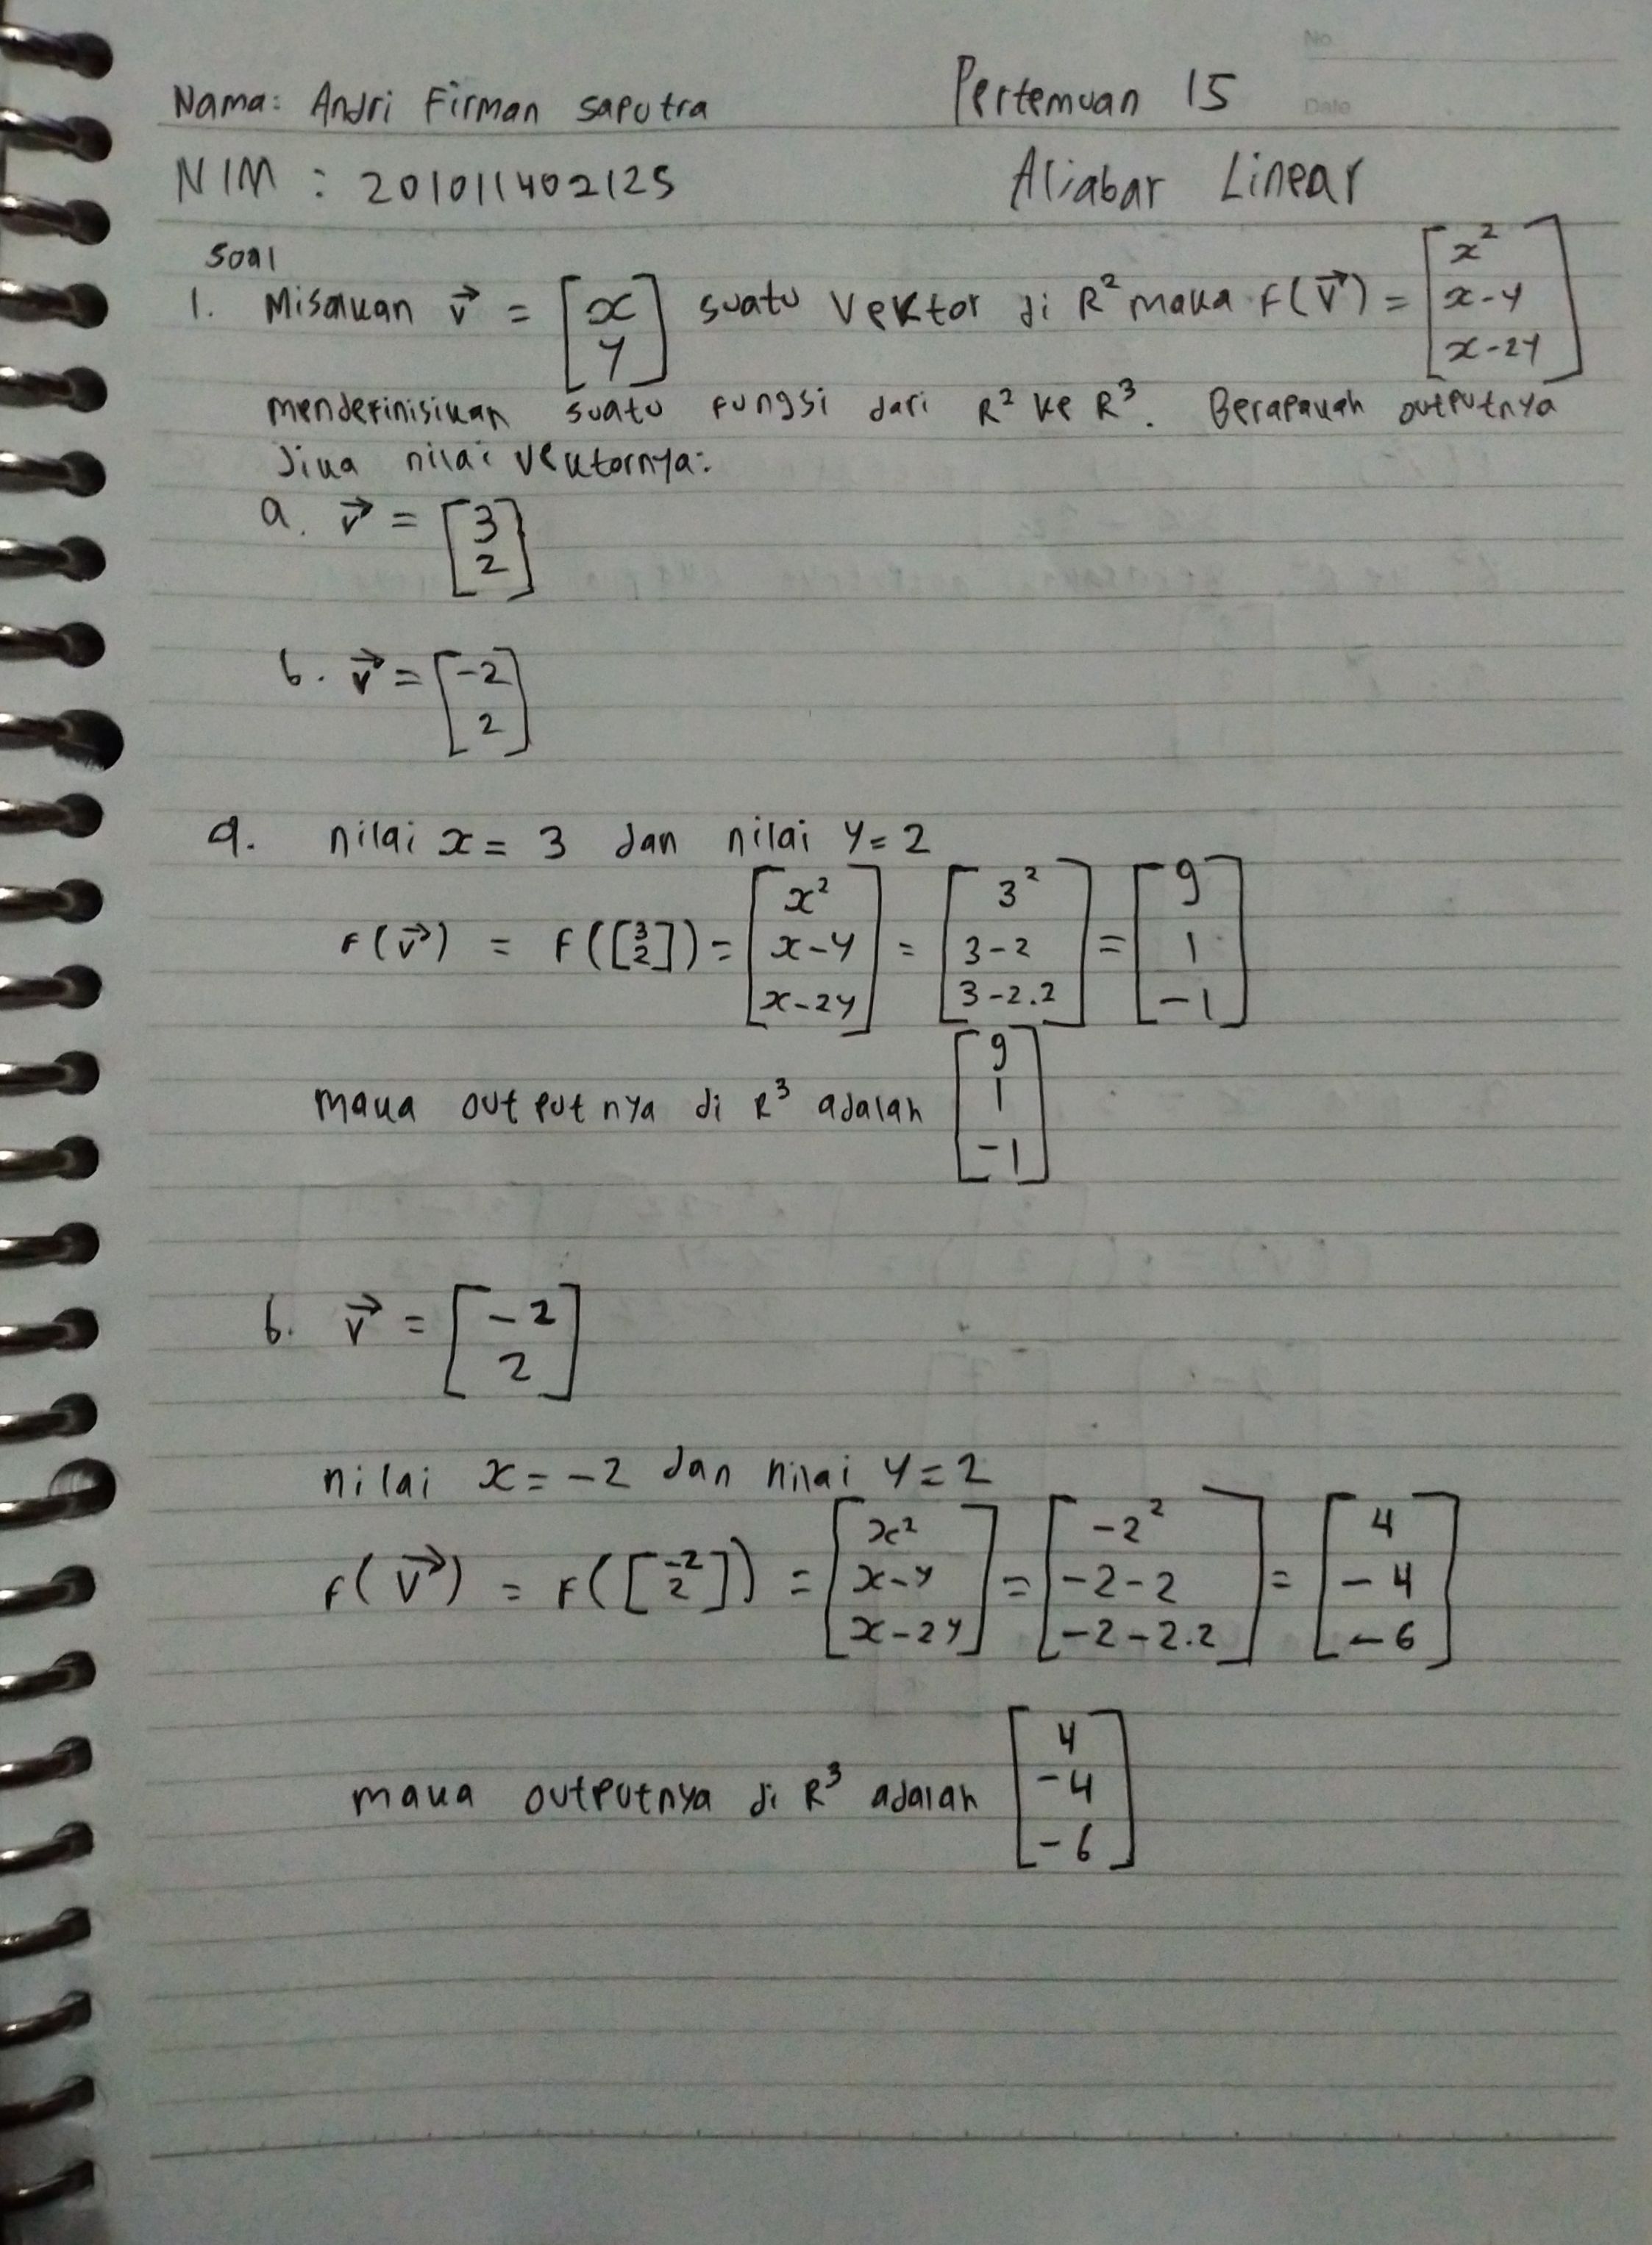 No
Date
Nama: Andri Firman Saputra
Pertemuan 15
NIM : 201011402125
Aljabar Linear
Soal
1. Misalkan v⃗ = [x; y] suatu vektor di R² maka F(v⃗) = [x²; x-y; x-2y]
mendefinisikan suatu fungsi dari R² ke R³. Berapakah outputnya
Jika nilai vektornya:
a. v⃗ = [3; 2]
b. v⃗ = [-2; 2]
a. nilai x = 3 dan nilai y = 2
F(v⃗) = F([3; 2]) = [x²; x-y; x-2y] = [3²; 3-2; 3-2.2] = [9; 1; -1]
maka outputnya di R³ adalah [9; 1; -1]
b. v⃗ = [-2; 2]
nilai x = -2 dan nilai y = 2
F(v⃗) = F([-2; 2]) = [x²; x-y; x-2y] = [-2²; -2-2; -2-2.2] = [4; -4; -6]
maka outputnya di R³ adalah [4; -4; -6]